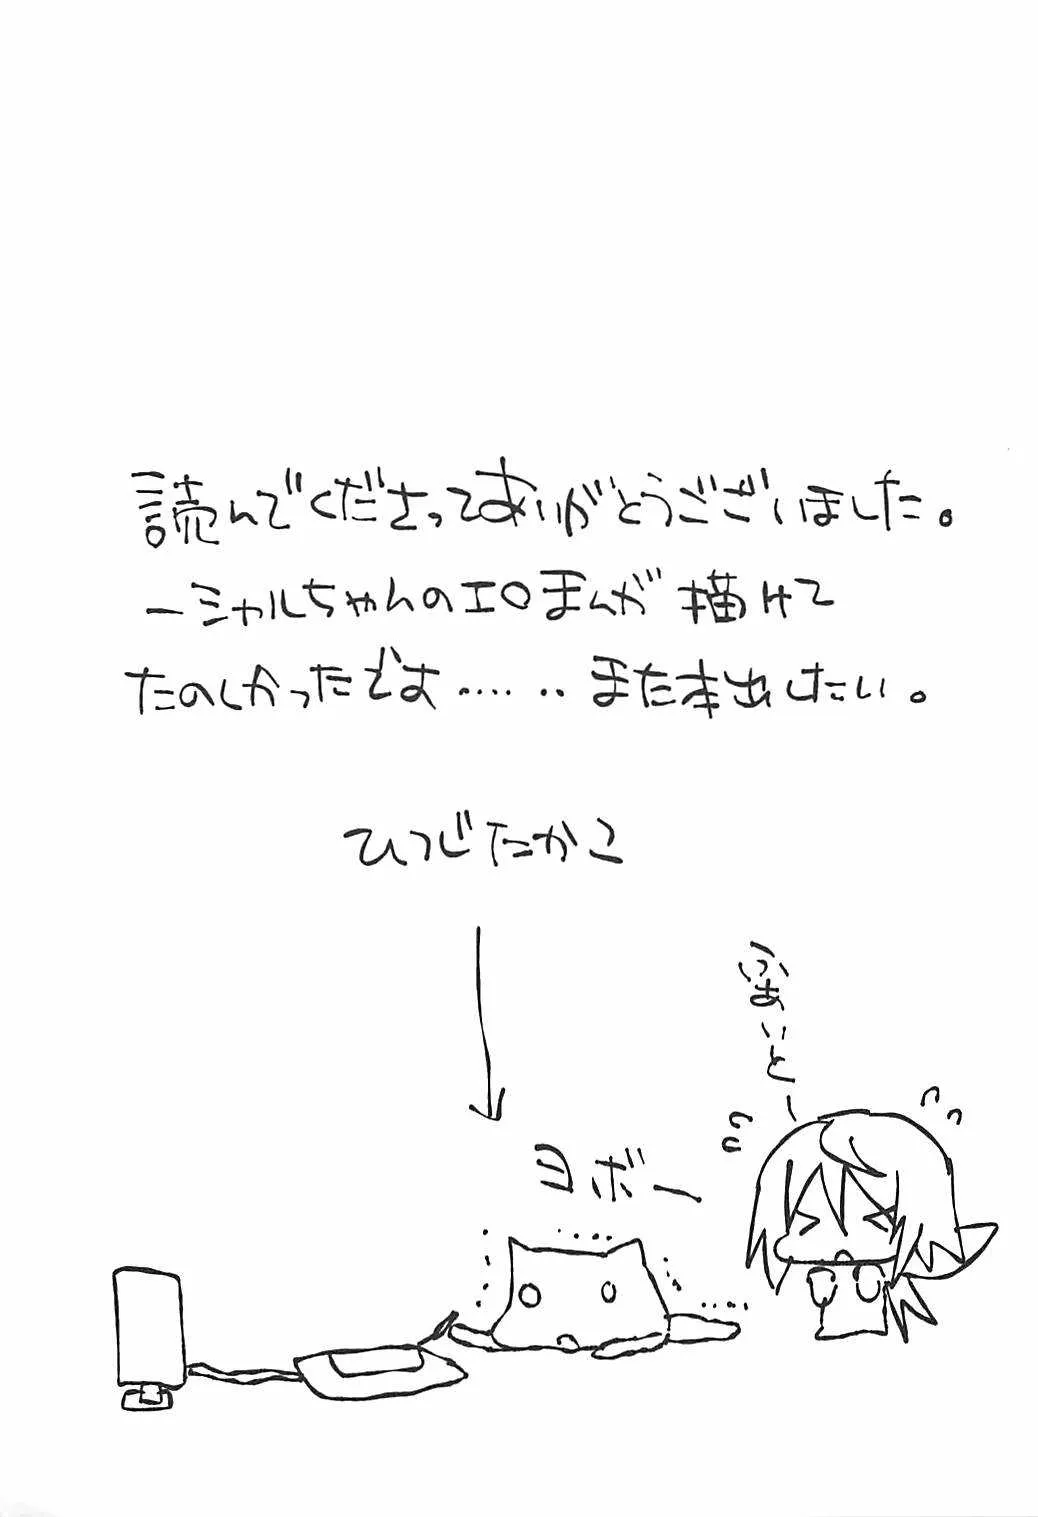 読んでくださってありがとうございました。
ーシャルちゃんのエロまんが描けて
たのしかったです‥‥‥また本出したい。
ひつじたかこ
ふぁいとー
ヨボー